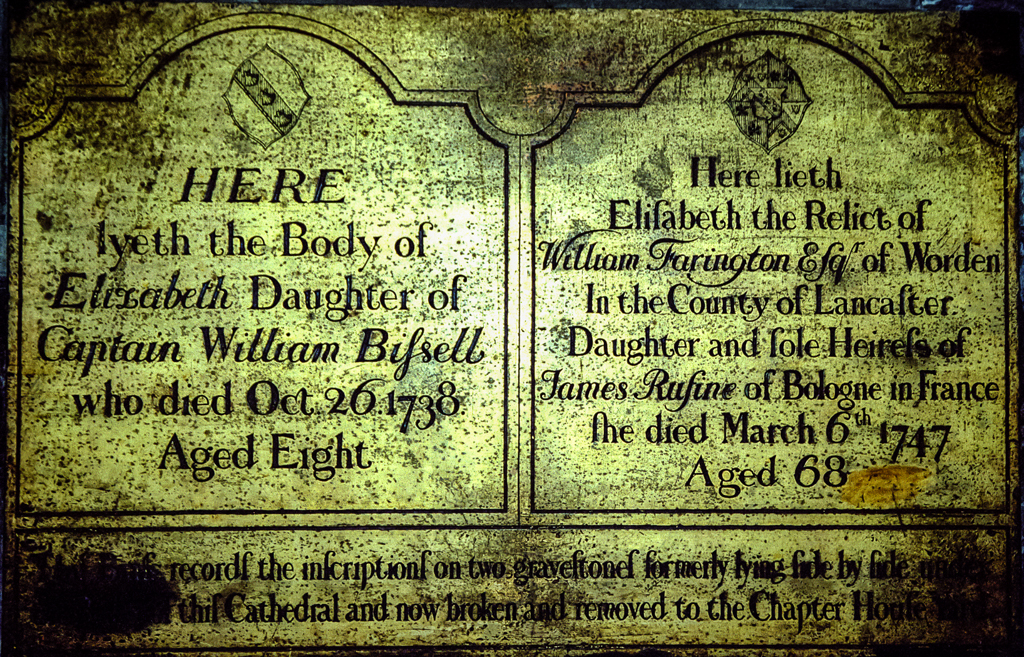 HERE
lyeth the Body of
Elizabeth Daughter of
Captain William Biſsell
who died Oct. 26. 1738.
Aged Eight
Here lieth
Eliſabeth the Relict of
William Farington Eſqr. of Worden
In the County of Lancaſter
Daughter and ſole Heireſs of
James Ruſine of Bologne in France
ſhe died March 6th 1747
Aged 68
recordſ the inſcriptionſ on two graveſtoneſ formerly lying ſide by ſide under
thiſ Cathedral and now broken and removed to the Chapter Houſe Yard